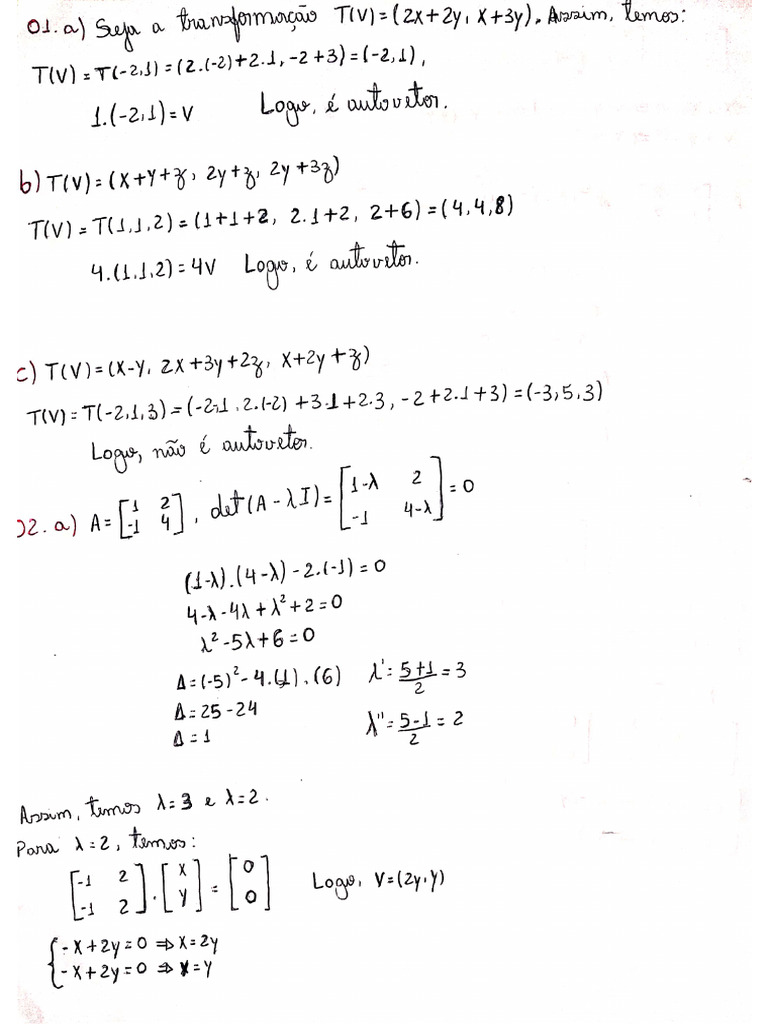 01. a) Seja a transformação T(V) = (2x+2y, x+3y). Assim, temos:
T(V) = T(-2,1) = (2.(-2)+2.1, -2+3) = (-2,1),
1.(-2,1) = V Logo, é autovetor.
b) T(V) = (x+y+z, 2y+z, 2y+3z)
T(V) = T(1,1,2) = (1+1+2, 2.1+2, 2+6) = (4,4,8)
4.(1,1,2) = 4V Logo, é autovetor.
c) T(V) = (x-y, 2x+3y+2z, x+2y+z)
T(V) = T(-2,1,3) = (-2-1, 2.(-2)+3.1+2.3, -2+2.1+3) = (-3,5,3)
Logo, não é autovetor.
02. a) A = [1 2; -1 4], det(A-λI) = [1-λ 2; -1 4-λ] = 0
(1-λ).(4-λ)-2.(-1) = 0
4-λ-4λ+λ²+2 = 0
λ²-5λ+6 = 0
Δ = (-5)²-4.(1).(6) λ' = 5+1/2 = 3
Δ = 25-24
Δ = 1 λ'' = 5-1/2 = 2
Assim, temos λ=3 e λ=2.
Para λ=2, temos:
[-1 2; -1 2].[x; y] = [0; 0] Logo, V = (2y,y)
{-x+2y=0 ⇒ x=2y
-x+2y=0 ⇒ y=y